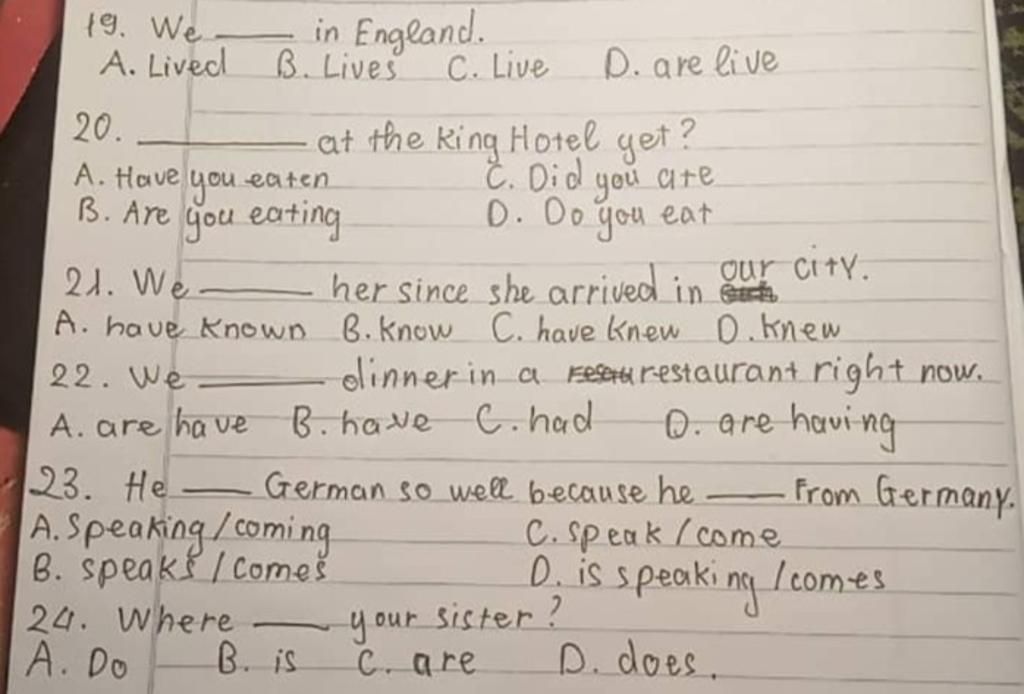 19. We ____ in England.
A. Lived B. Lives C. Live D. are live
20. ____ at the King Hotel yet?
A. Have you eaten C. Did you ate
B. Are you eating D. Do you eat
21. We ____ her since she arrived in our city.
A. have known B. know C. have knew D. knew
22. We ____ dinner in a restaurant right now.
A. are have B. have C. had D. are having
23. He ____ German so well because he ____ From Germany.
A. Speaking / coming C. speak / come
B. speaks / comes D. is speaking / comes
24. Where ____ your sister?
A. Do B. is C. are D. does.